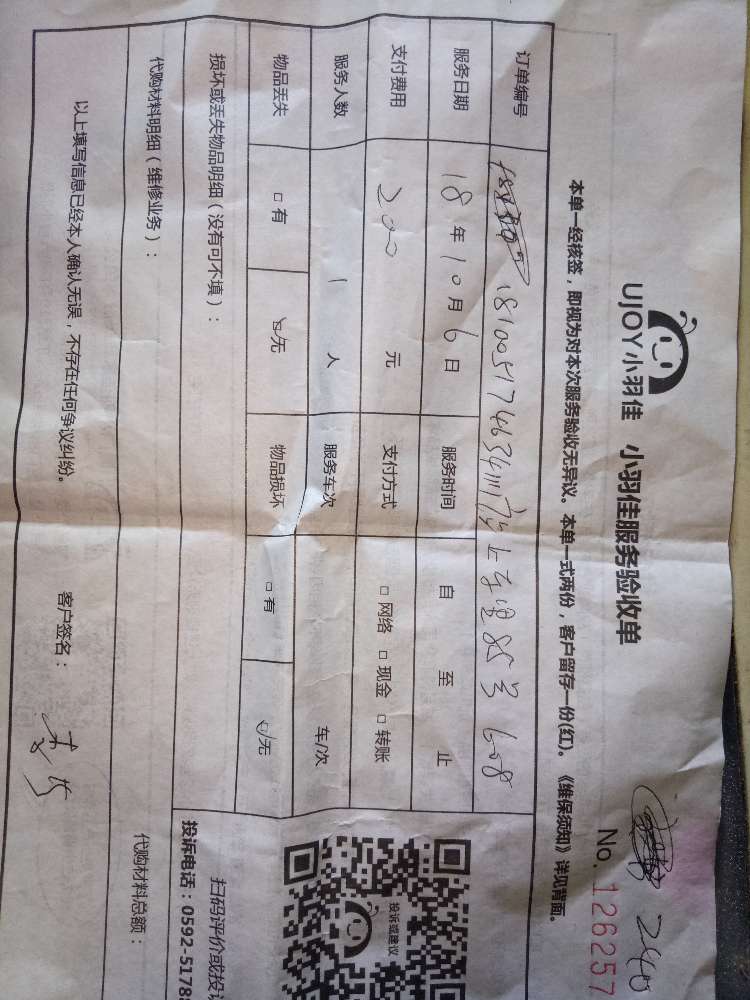 240
UJOY小羽佳 小羽佳服务验收单
No. 126257
本单一经核签，即视为对本次服务验收无异议。本单一式两份，客户留存一份(红)。《维保须知》详见背面。
订单编号
服务日期 18年10月6日 服务时间 自 至 止
支付费用 200 元 支付方式 □网络 □现金 □转账
服务人数 1 人 服务车次 车/次
物品丢失 □有 ☑无 物品损坏 □有 ☑无
损坏或丢失物品明细（没有可不填）：
投诉或建议
扫码评价或投诉
投诉电话：0592-5178
代购材料明细（维修业务）：
代购材料总额：
以上填写信息已经本人确认无误，不存在任何争议纠纷。
客户签名：